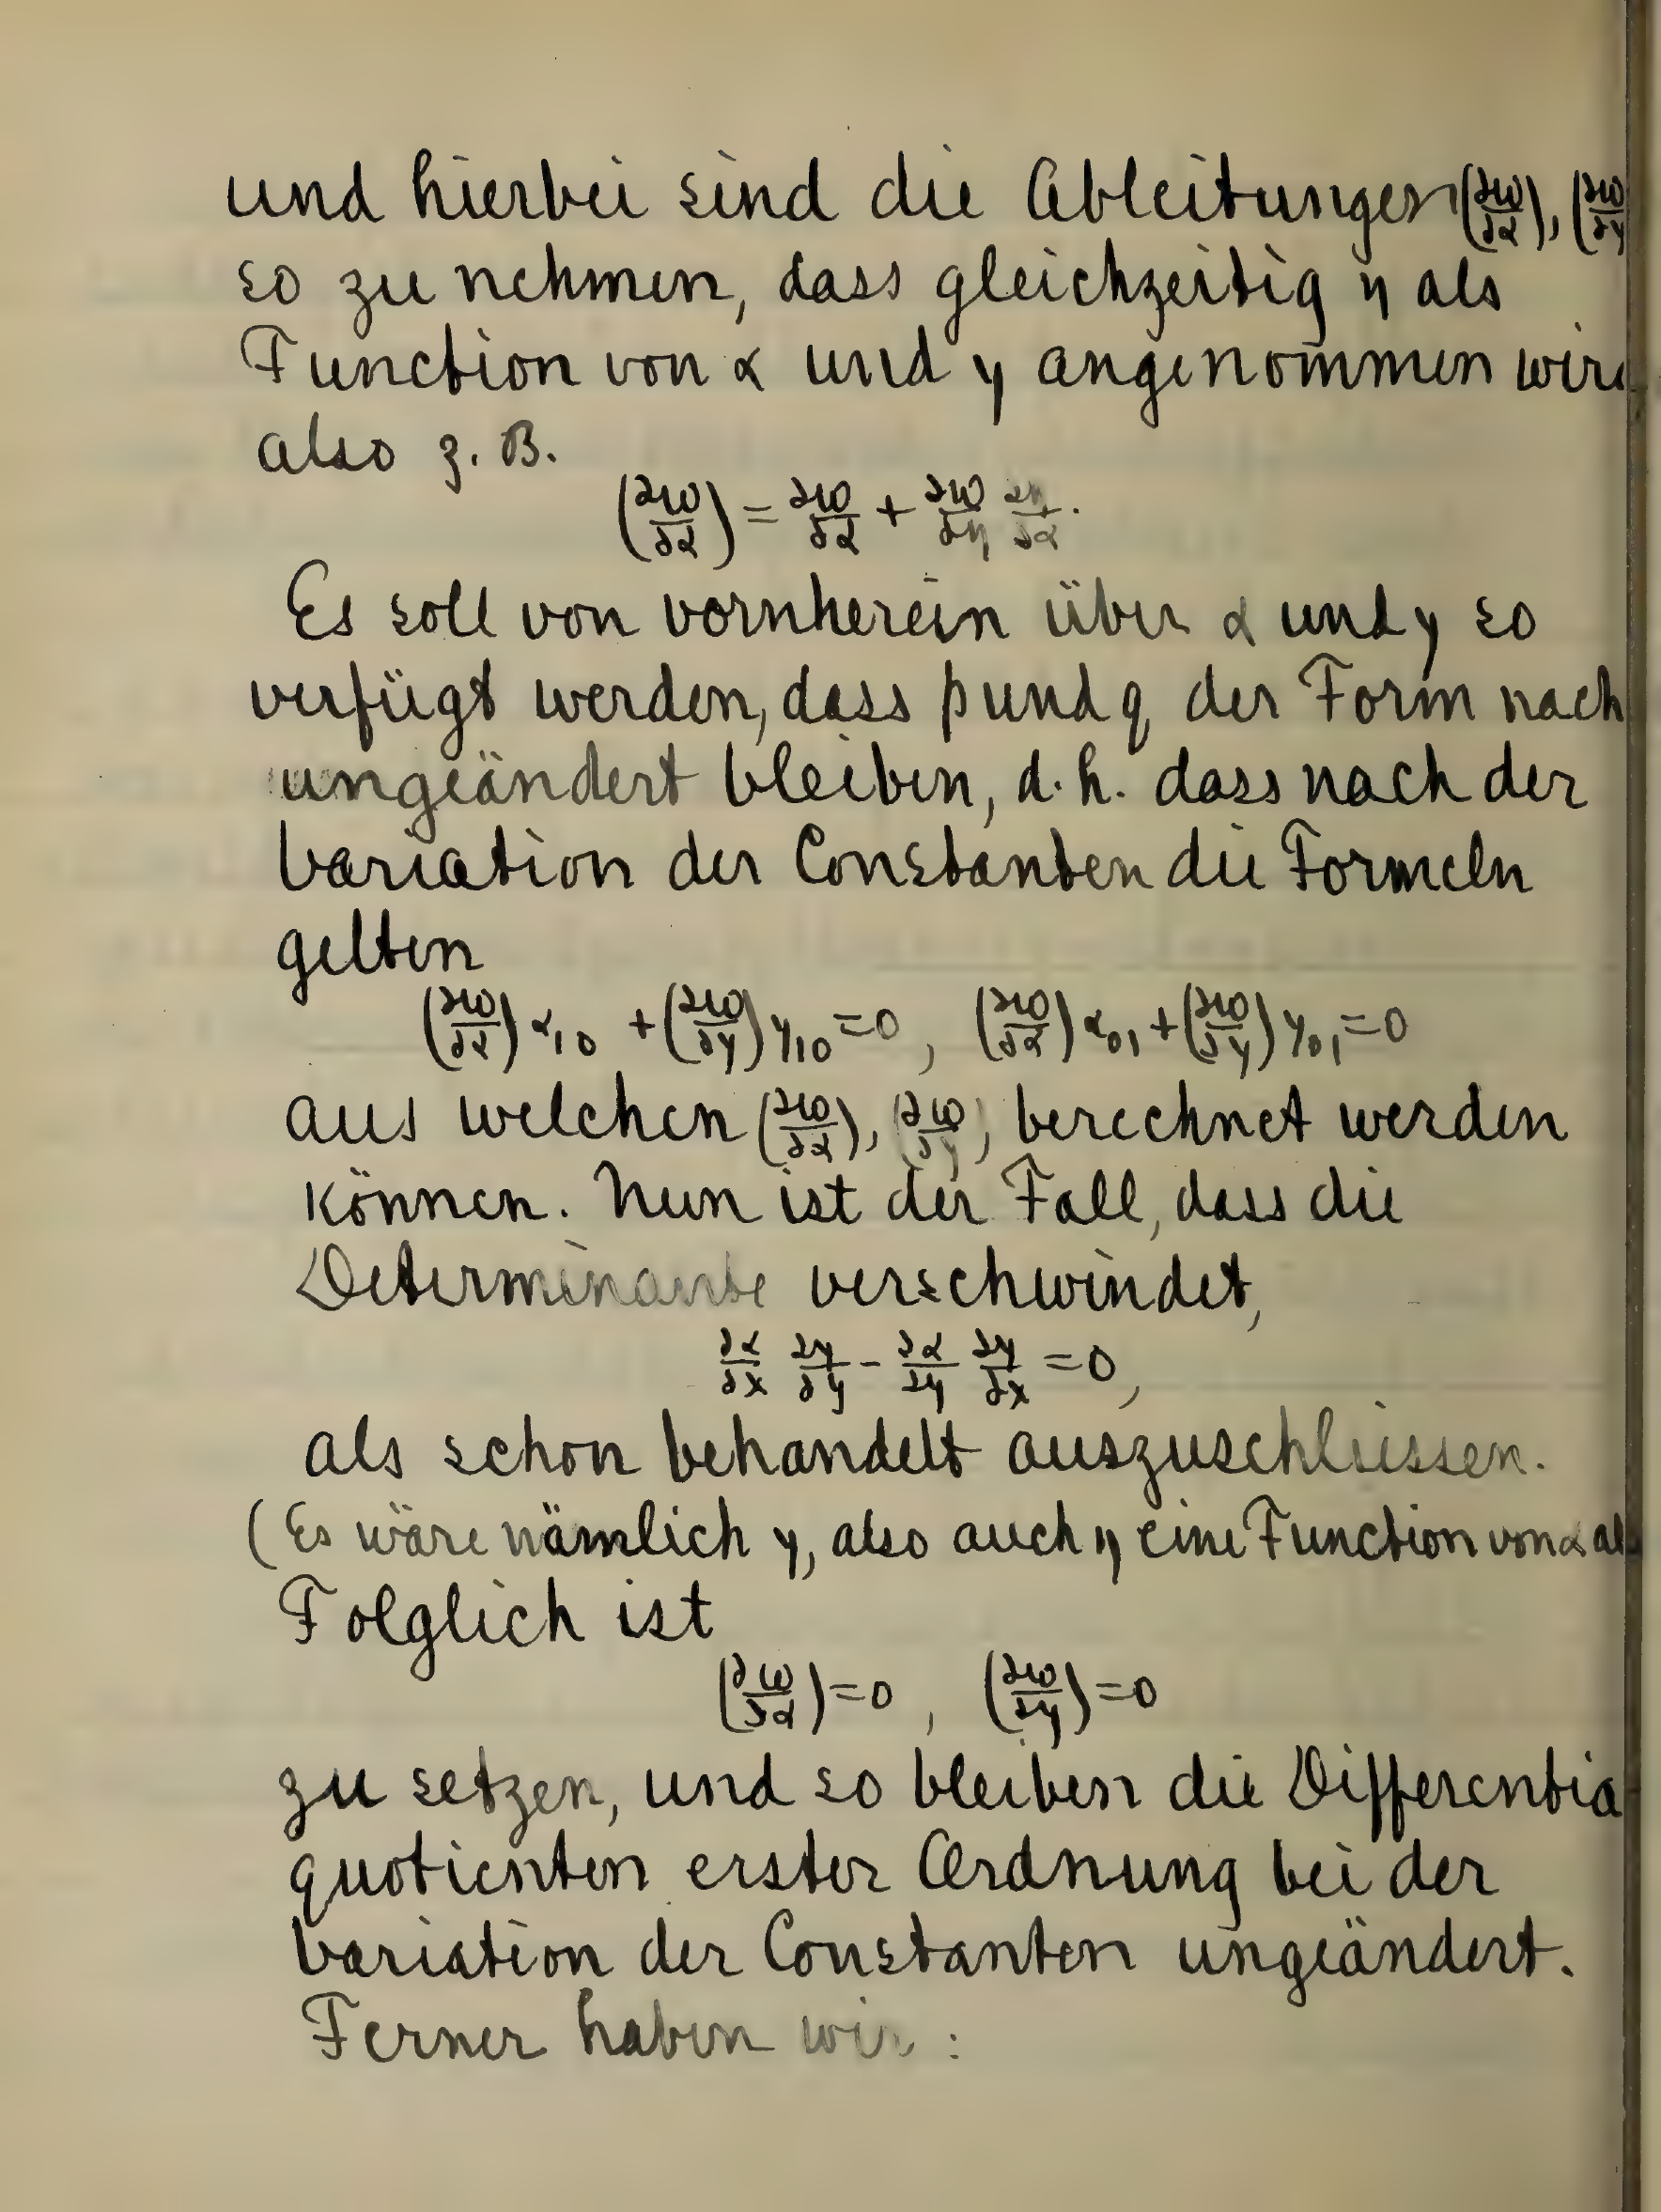 und hierbei sind die Ableitungen (∂ω/∂α), (∂ω/∂y
so zu nehmen, dass gleichzeitig η als
Function von α und y angenommen wird
also z. B.
(∂ω/∂α) = ∂ω/∂α + ∂ω/∂η ∂η/∂α.
Es soll von vornherein über α und y so
verfügt werden, dass p und q der Form nach
ungeändert bleiben, d. h. dass nach der
Variation der Constanten die Formeln
gelten
(∂ω/∂α) α₁₀ + (∂ω/∂y) y₁₀ = 0, (∂ω/∂α) α₀₁ + (∂ω/∂y) y₀₁ = 0
aus welchen (∂ω/∂α), (∂ω/∂y) berechnet werden
können. Nun ist der Fall, dass die
Determinante verschwindet,
∂α/∂x ∂y/∂y - ∂α/∂y ∂y/∂x = 0,
als schon behandelt auszuschliessen.
(Es wäre nämlich y, also auch η eine Function von α al
Folglich ist
(∂ω/∂α) = 0, (∂ω/∂y) = 0
zu setzen, und so bleiben die Differentia
quotienten erster Ordnung bei der
Variation der Constanten ungeändert.
Ferner haben wir :